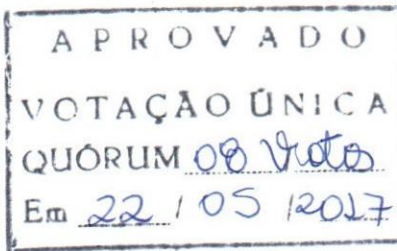 APROVADO
VOTAÇÃO ÚNICA
QUÓRUM 08 Votos
Em 22 / 05 /2017